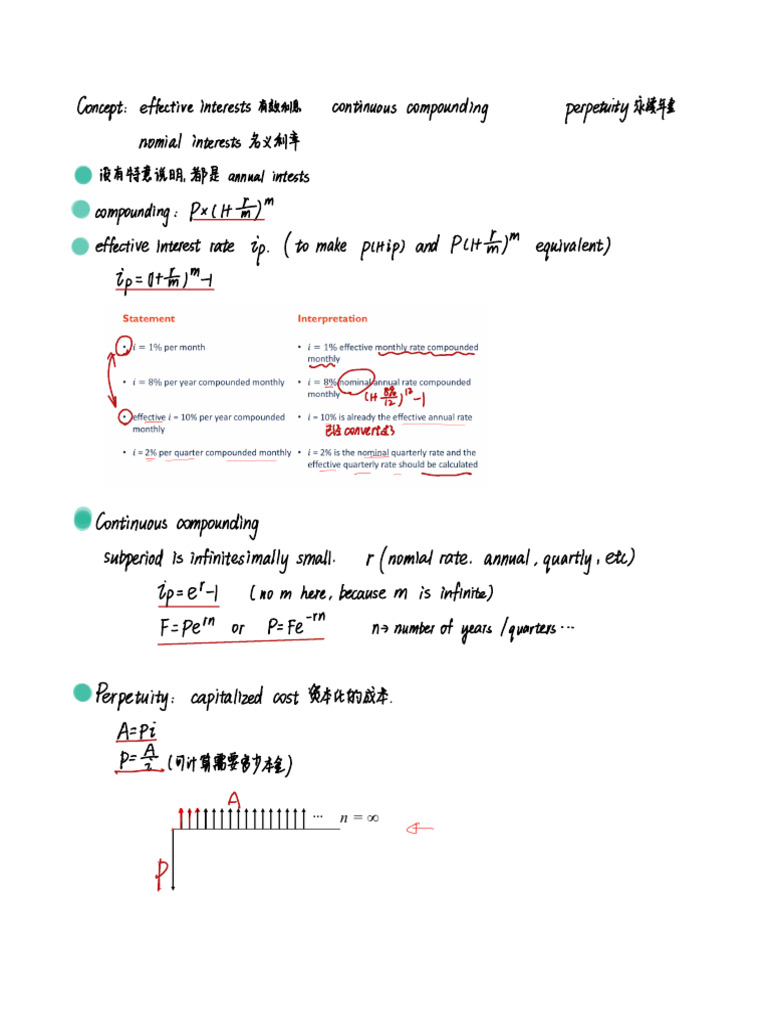 Concept: effective interests 有效利息 continuous compounding perpetuity 永续年金
nomial interests 名义利率
没有特意说明,都是 annual intests
compounding: P×(1+r/m)^m
effective interest rate ip. (to make P(1+ip) and P(1+r/m)^m equivalent)
ip=(1+r/m)^m-1
Statement Interpretation
• i = 1% per month • i = 1% effective monthly rate compounded
monthly
• i = 8% per year compounded monthly • i = 8% nominal annual rate compounded
monthly (1+8%/12)^12-1
• effective i = 10% per year compounded • i = 10% is already the effective annual rate
monthly 已经converted了
• i = 2% per quarter compounded monthly • i = 2% is the nominal quarterly rate and the
effective quarterly rate should be calculated
Continuous compounding
subperiod is infinitesimally small. r (nomial rate. annual, quartly, etc)
ip=e^r-1 (no m here, because m is infinite)
F=Pe^rn or P=Fe^-rn n→number of years/quarters ···
Perpetuity: capitalized cost 资本化的成本.
A=Pi
P=A/i (可计算需要多少本金)
A ... n = ∞
P